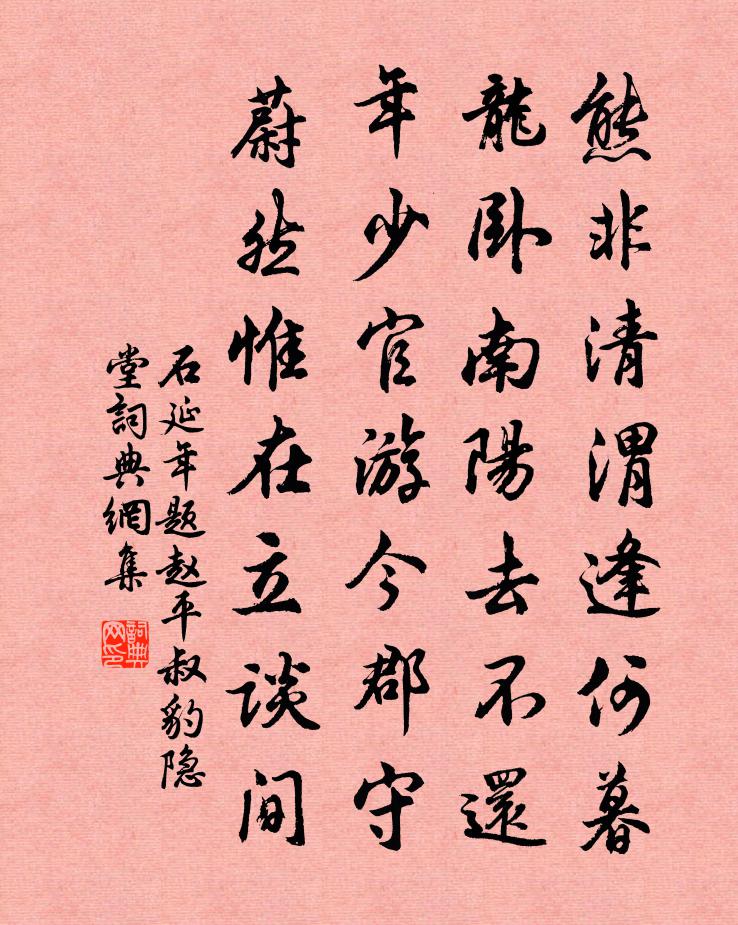 熊非清渭逢何暮
龍卧南陽去不還
年少官游今郡守
蔚然惟在立談间
石延年题赵平叔豹隐
堂詞典網集
詞典
网印